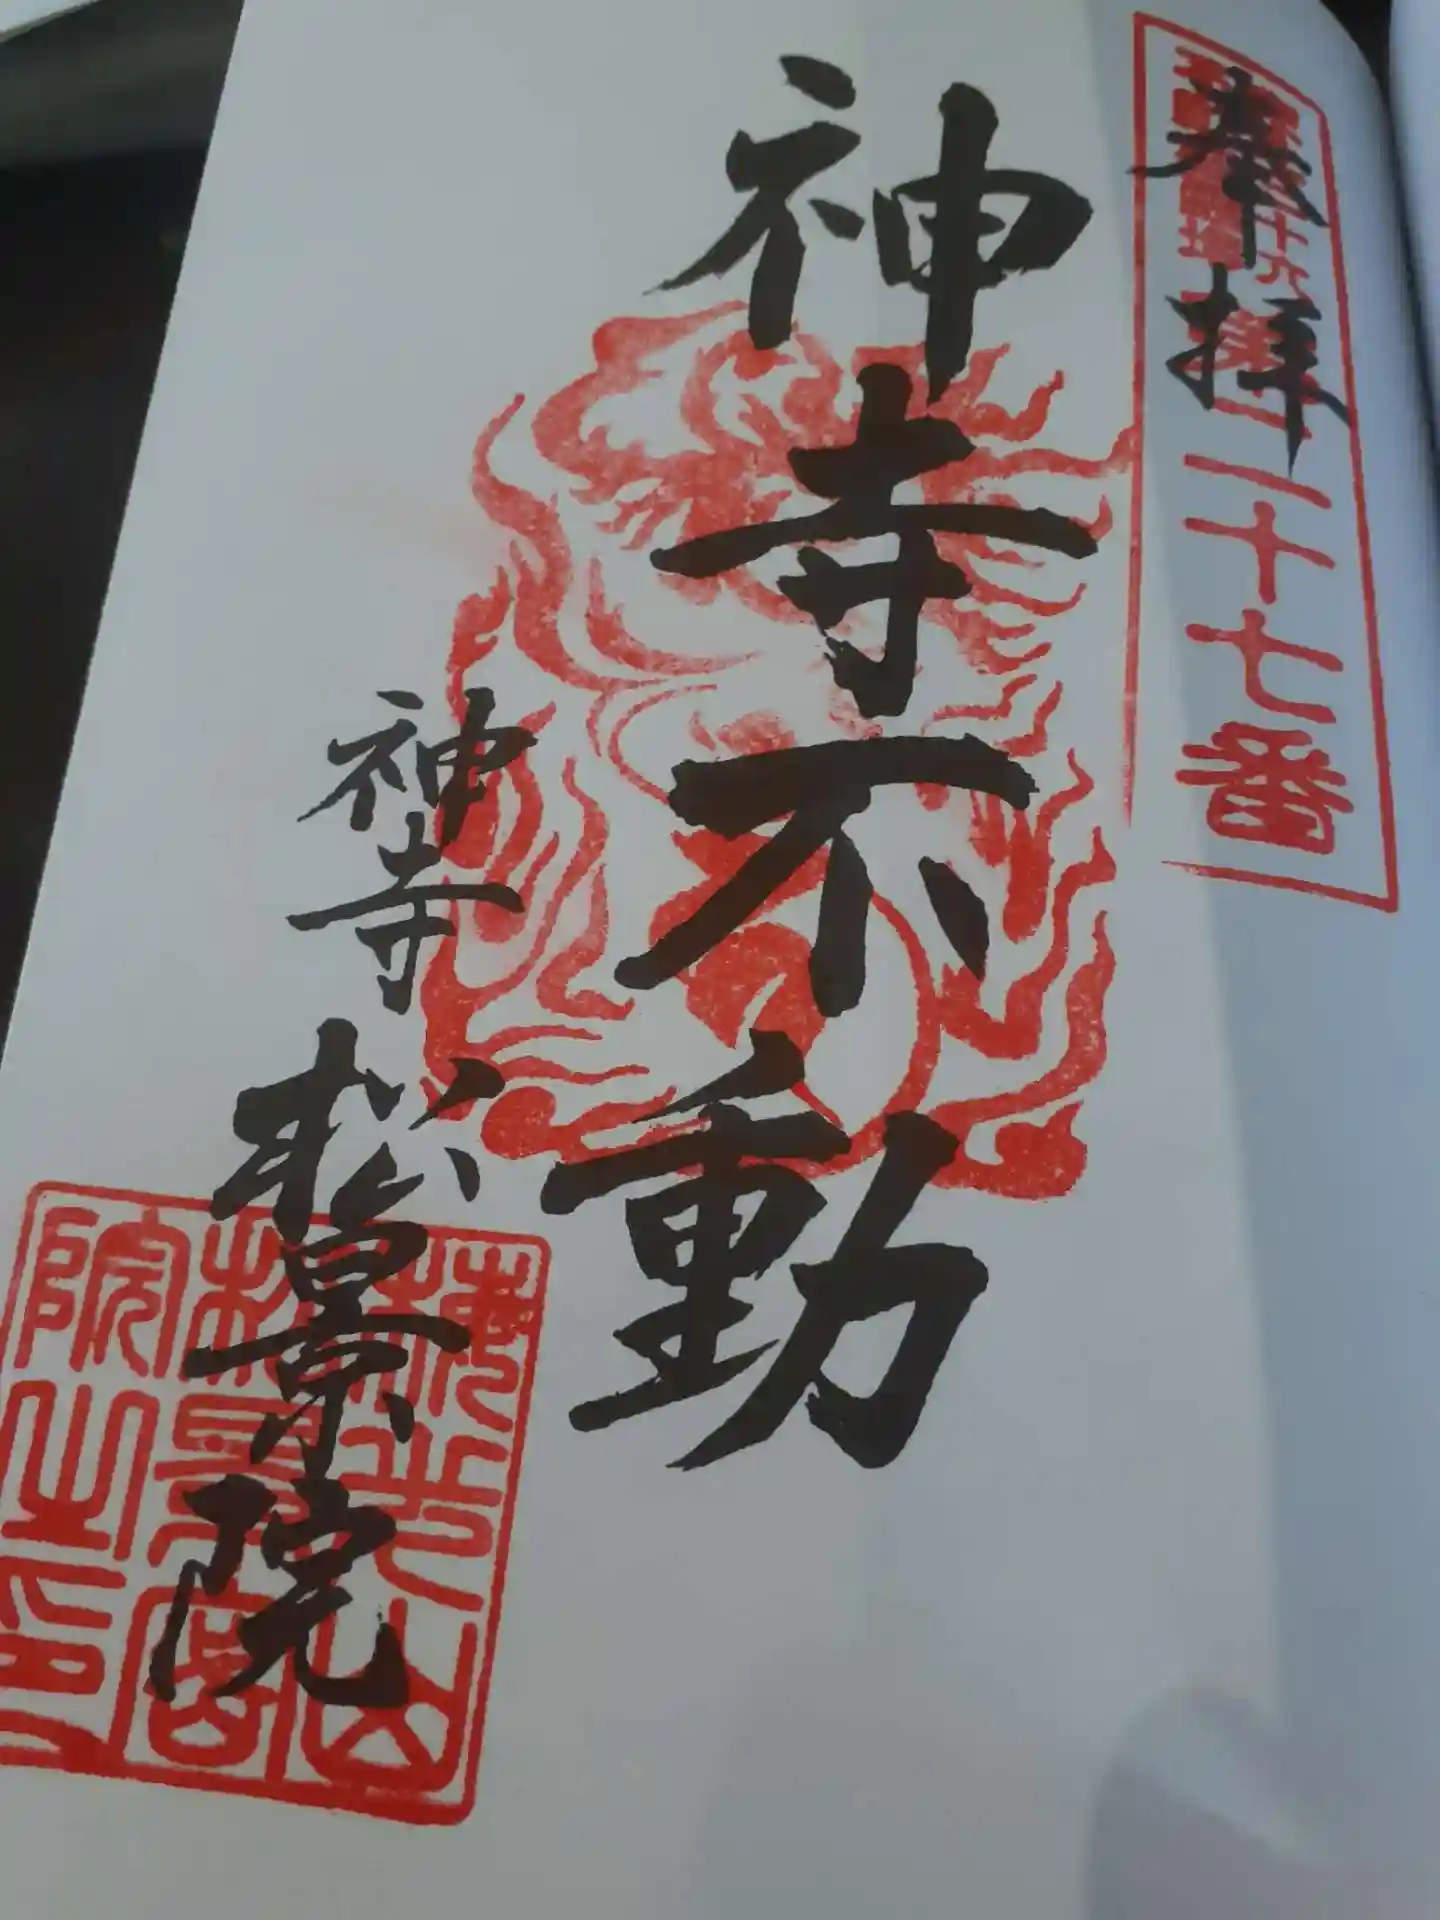 奉拝
二十七番
神寺不動
神寺
松景院